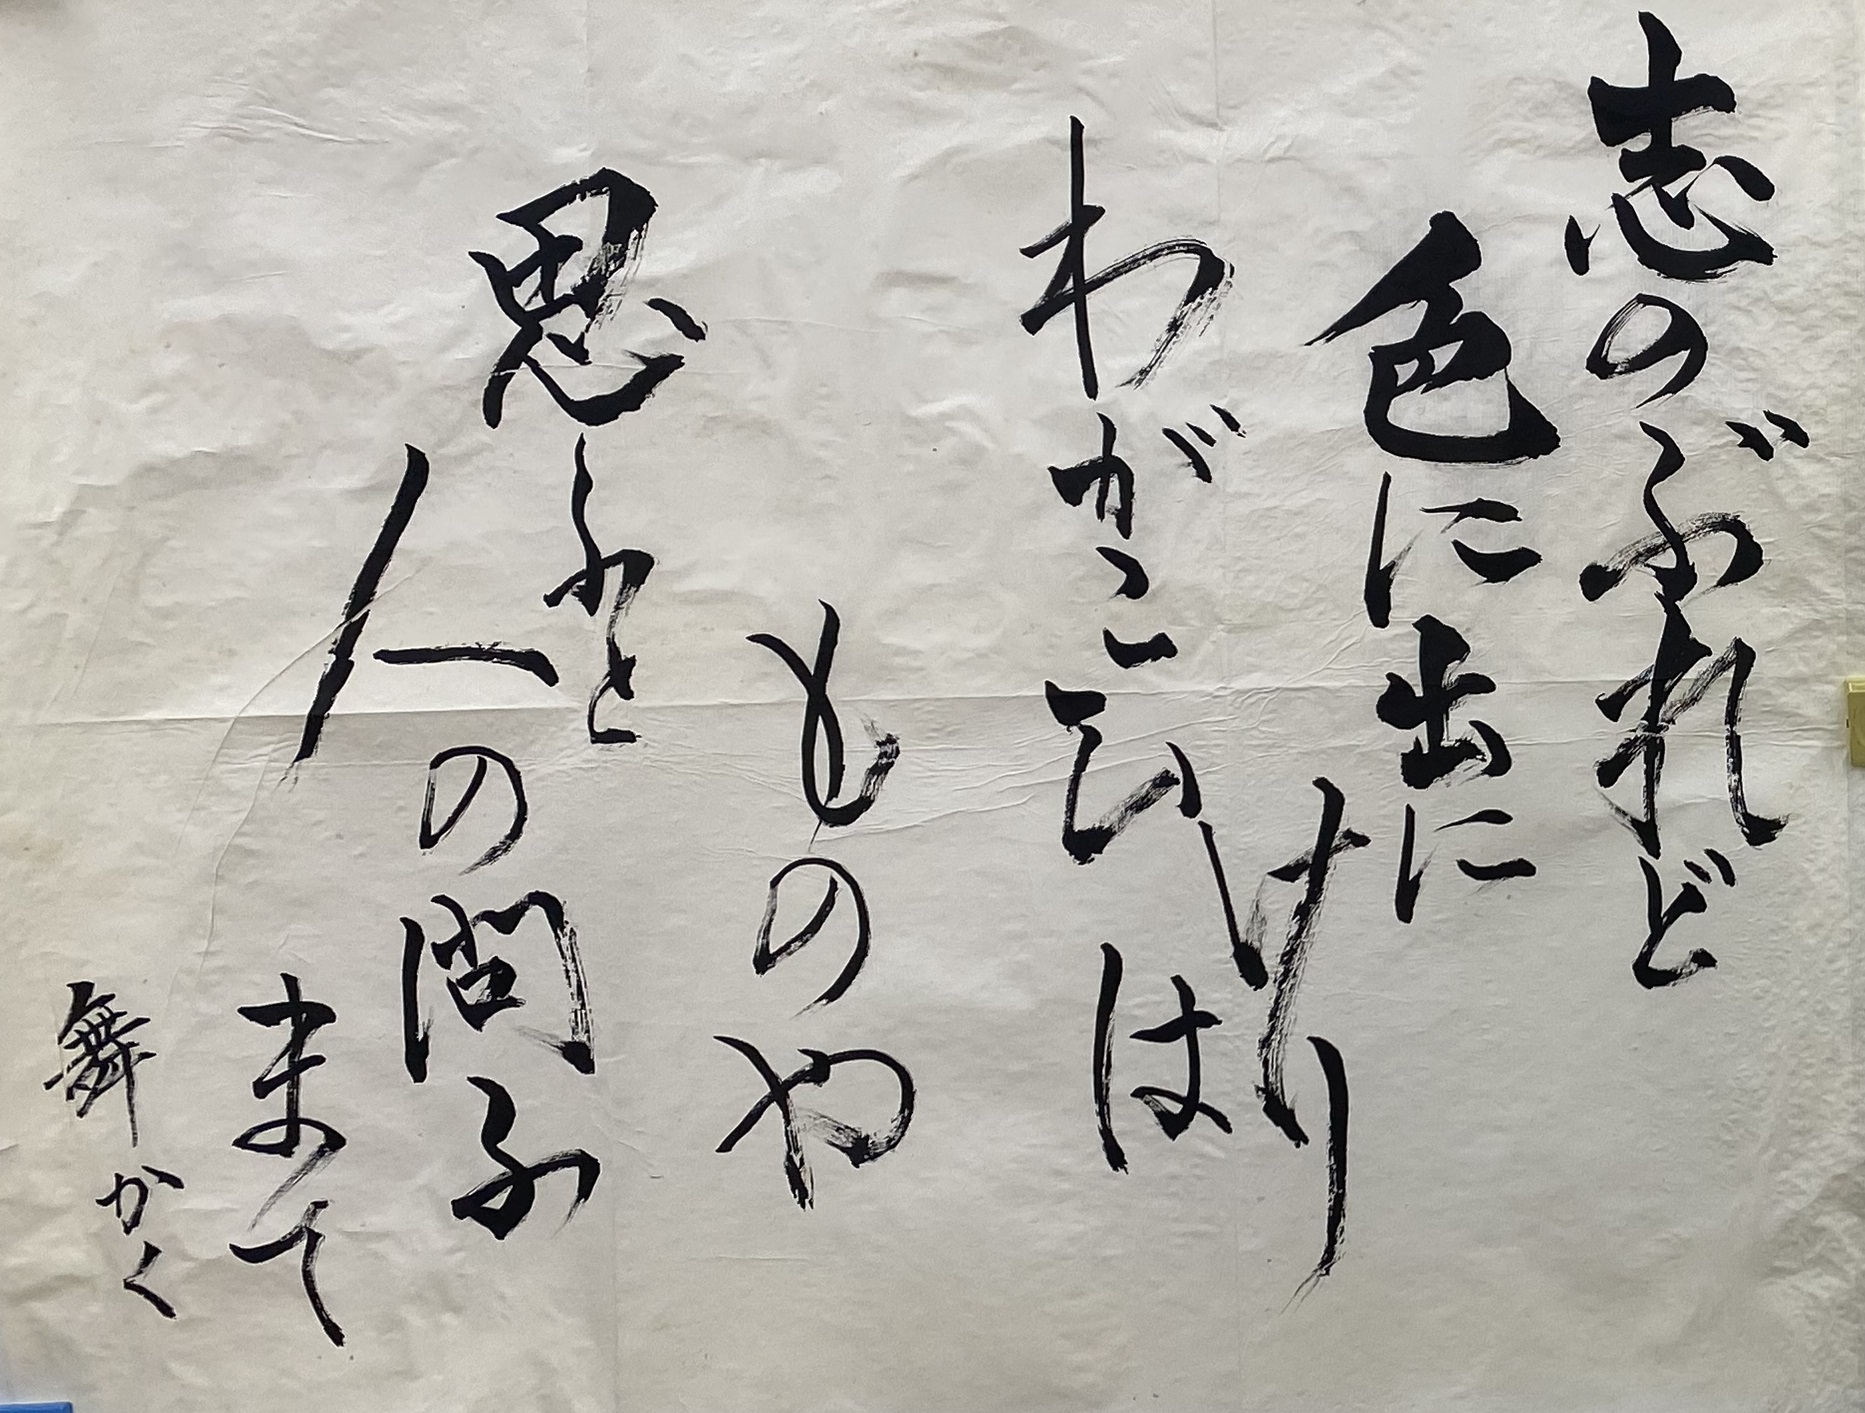 志のぶれど
色に出に
けり
わがこひは
ものや
思ふと
人の問ふ
まて
舞かく